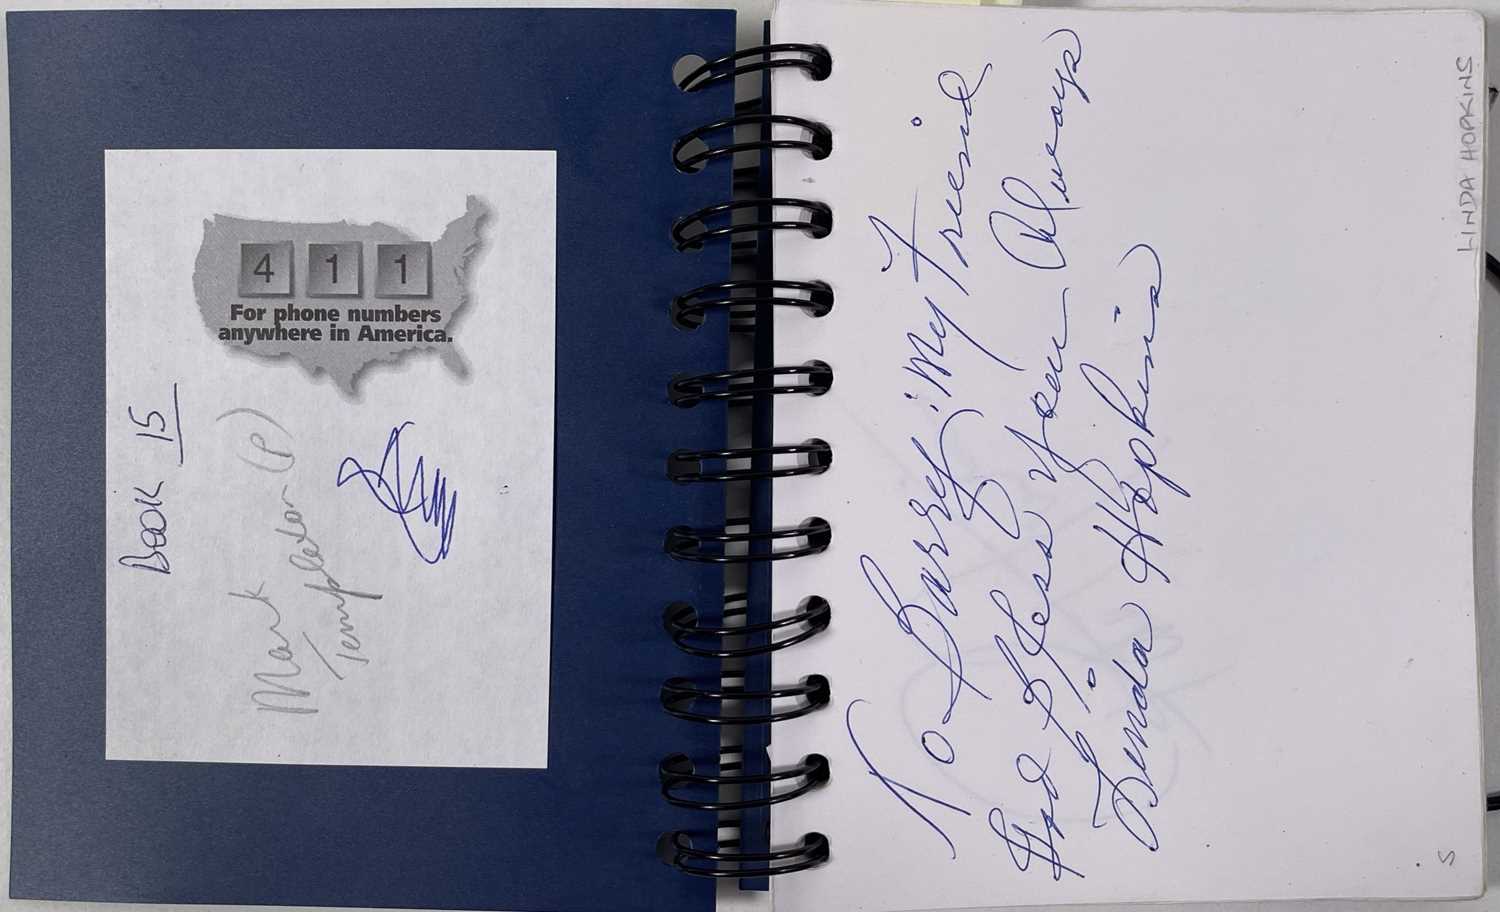 4 1 1
For phone numbers
anywhere in America.
Book 15
Mark (P)
Templeton
To Barry : My Friend
God Bless you Always
Linda Hopkins
LINDA HOPKINS
S